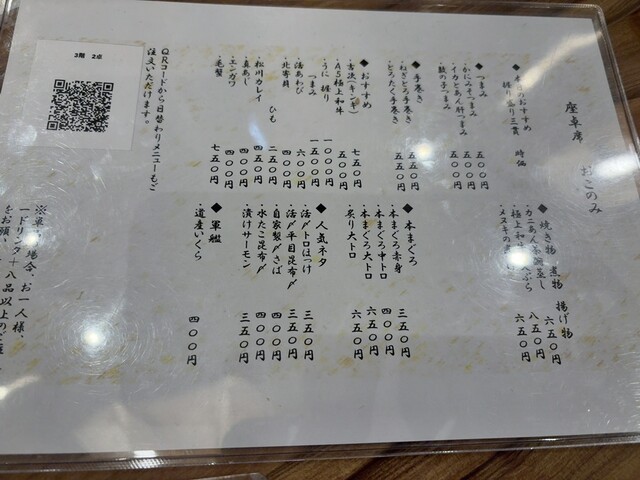 座卓席 おこのみ
時価
◆つまみ
・かにみそつまみ 五〇〇円
・イカとあん肝つまみ 五五〇円
五〇〇円
◆手巻き
・ねぎとろ手巻き 五五〇円
・とろたく手巻き 五五〇円
◆おすすめ
七五〇円
・A5極上和牛 五〇〇円
・うに 握り 一〇〇〇円
つまみ 一五〇〇円
・活あわび 六〇〇円
・北寄貝 四〇〇円
ひも 二五〇円
・松川カレイ 四五〇円
・真あじ 四〇〇円
・エンガワ 四〇〇円
・毛蟹 七五〇円
QRコードから日替わりメニューもご
注文いただけます。
3階 2点
◆焼き物 煮物 揚げ物
・カニあん茶碗蒸し 六五〇円
八五〇円
六五〇円
◆本まぐろ
・本まぐろ赤身 三五〇円
・本まぐろ中トロ 四〇〇円
・本まぐろ大トロ 六五〇円
・炙り大トロ 六五〇円
◆人気ネタ
・活〆トロほっけ 三五〇円
・活〆平目昆布〆 三五〇円
・自家製〆さば 四〇〇円
・水たこ昆布〆 四〇〇円
・漬けサーモン 三五〇円
◆軍艦
・道産いくら 四〇〇円
場合、お一人様、
一ドリンク+八品以上のご注
をお願